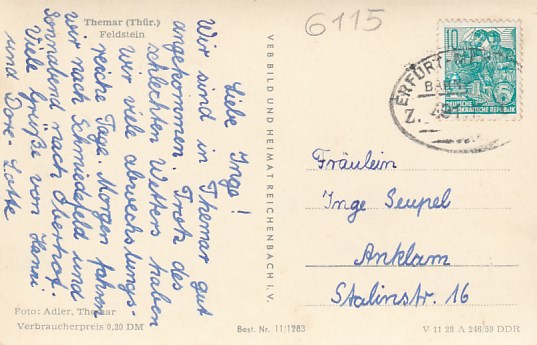 Themar (Thür.)
Feldstein
6115
Liebe Inge!
Wir sind in Themar gut
angekommen. Trotz des
schlechten Wetters haben
wir viele abwechslungs-
reiche Tage. Morgen fahren
wir nach Schmiedefeld und
Sonnabend nach Oberhof.
Viele Grüße von Hansi
und Dore-Lotte
Foto: Adler, Themar
Verbraucherpreis 0,20 DM
VEB BILD UND HEIMAT REICHENBACH I. V.
Best. Nr. 11/1283
10
DEUTSCHE
DEMOKRATISCHE REPUBLIK
ERFURT
BAHN
Z.
Fräulein
Inge Seupel
Anklam
Stalinstr. 16
V 11 28 A 246/59 DDR